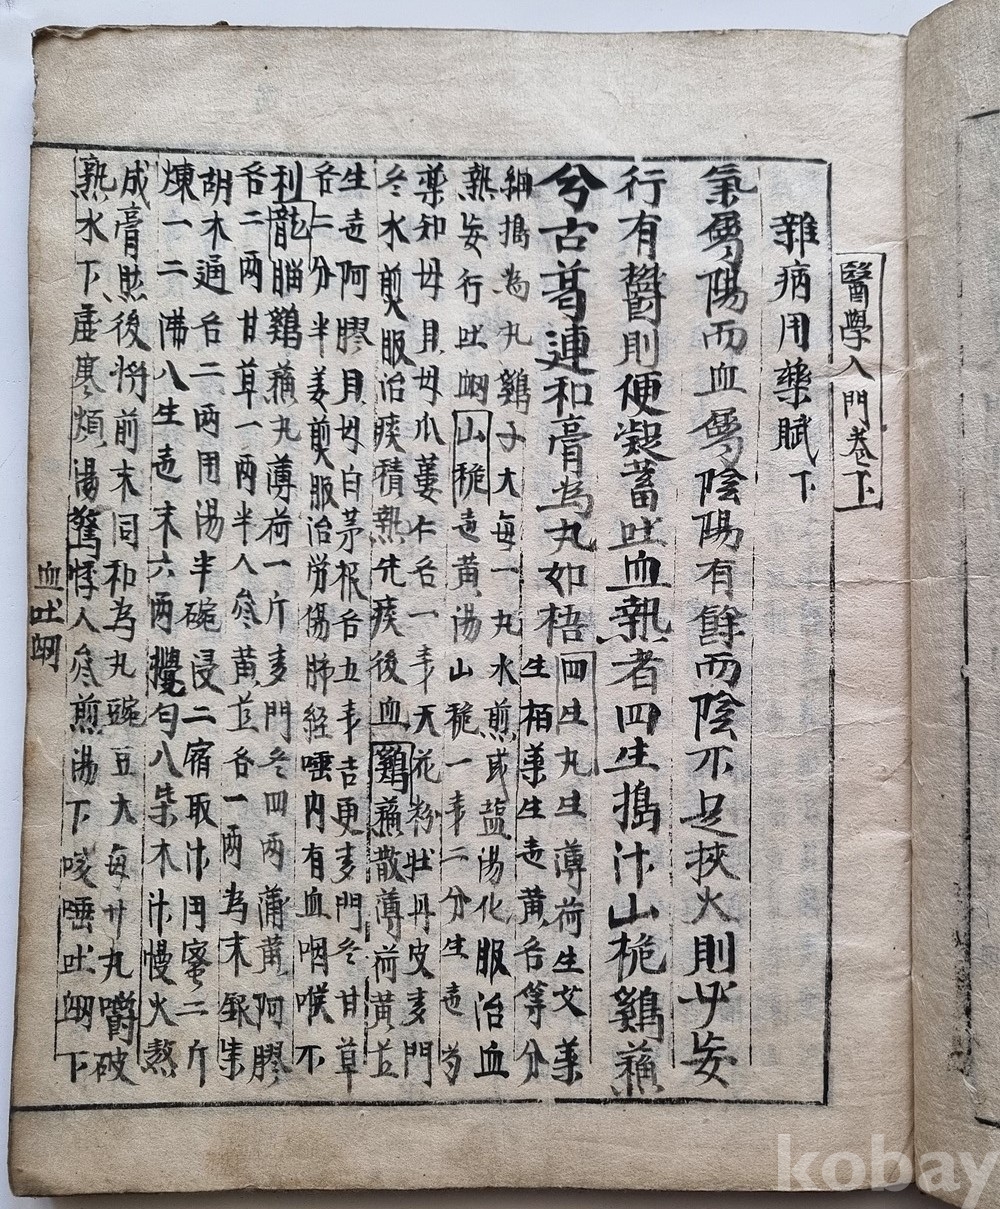 醫學入門卷下
雜病用藥賦下
氣属陽而血属陰陽有餘而陰不足挾火則必妄
行有鬱則便凝蓄吐血熱者四生搗汁山梔鷄蘓
兮古葛連和膏為丸如梧
四生丸生薄荷生艾葉
生栢葉生地黄各等分
細搗為丸鷄子大每一丸水煎或盐湯化服治血
熱妄行吐衂山梔地黄湯山梔一戔二分生地芍
藥知母貝母瓜蔞仁各一戔天花粉牡丹皮麦門
冬水煎服治痰積熱先痰後血鷄蘓散薄荷黄芪
生地阿膠貝母白茅根各五戔吉更麦門冬甘草
各二分半姜煎服治労傷肺経唾内有血咽喉不
利龍腦鷄蘓丸薄荷一斤麦門冬四兩蒲黄阿膠
各二两甘草一两半人参黄芪各一两為末銀柴
胡木通各二两用湯半碗浸二宿取汁用蜜二斤
煉一二沸八生地末六两攪匀八柴木汁慢火熬
成膏然後將前末同和為丸豌豆大每廿丸嚼破
熟水下虚寒煩湯驚悸人参煎湯下咳唾吐衂下
血吐衂
kobay